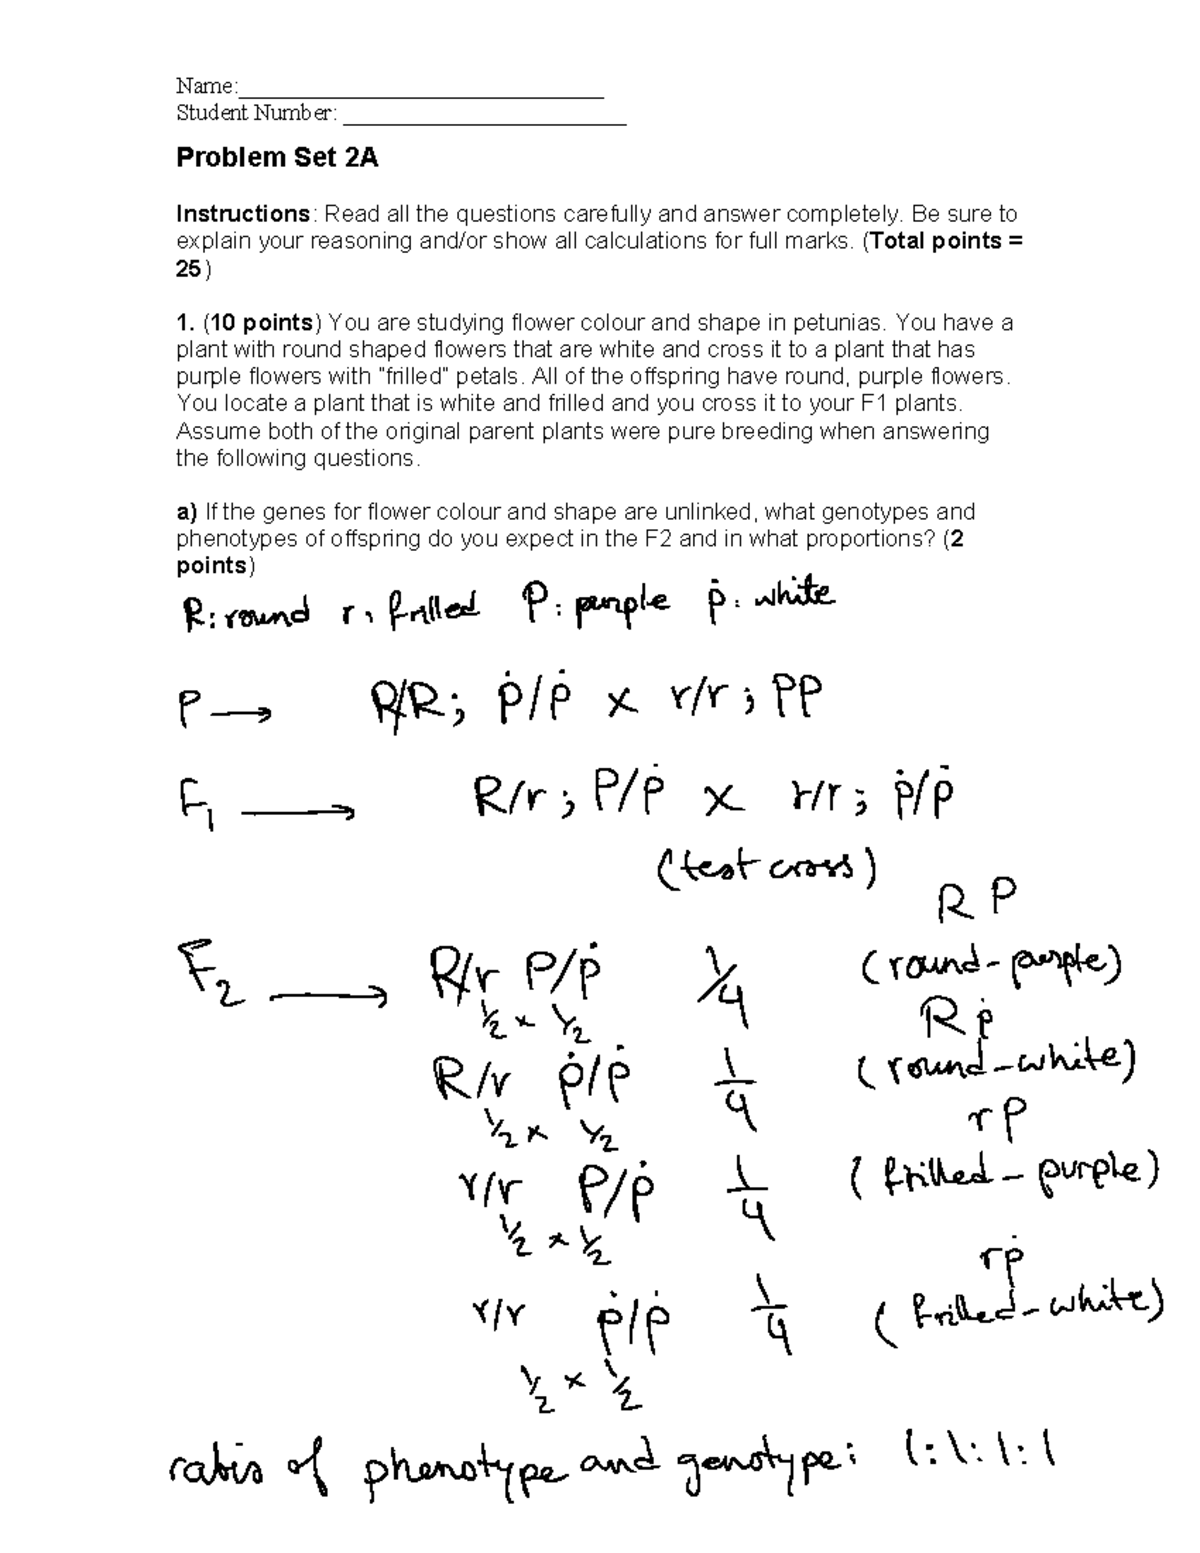 Name:______________________________
Student Number: ________________________
Problem Set 2A
Instructions: Read all the questions carefully and answer completely. Be sure to
explain your reasoning and/or show all calculations for full marks. (Total points =
25)
1. (10 points) You are studying flower colour and shape in petunias. You have a
plant with round shaped flowers that are white and cross it to a plant that has
purple flowers with "frilled" petals. All of the offspring have round, purple flowers.
You locate a plant that is white and frilled and you cross it to your F1 plants.
Assume both of the original parent plants were pure breeding when answering
the following questions.
a) If the genes for flower colour and shape are unlinked, what genotypes and
phenotypes of offspring do you expect in the F2 and in what proportions? (2
points)
R: round r: frilled P: purple ṗ: white
P → R/R; ṗ/ṗ x r/r; PP
F1 → R/r; P/ṗ x r/r; ṗ/ṗ
(test cross)
R P
F2 → R/r P/ṗ 1/4 (round-purple)
1/2 x 1/2
R ṗ
R/r ṗ/ṗ 1/4 (round-white)
1/2 x 1/2
r P
r/r P/ṗ 1/4 (frilled-purple)
1/2 x 1/2
r ṗ
r/r ṗ/ṗ 1/4 (frilled-white)
1/2 x 1/2
ratio of phenotype and genotype: 1:1:1:1